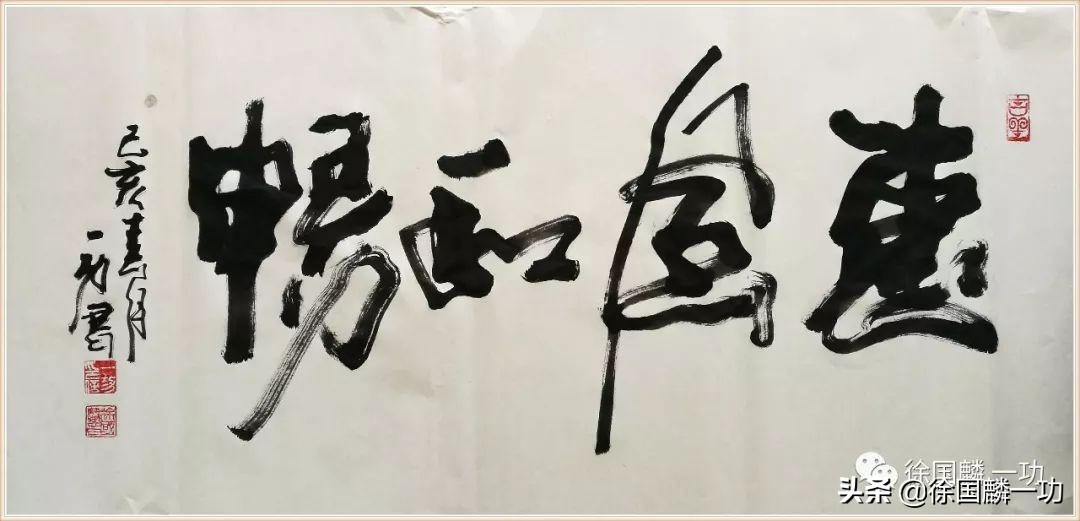 惠風和暢
己亥春月
一功書
徐国麟 一功
头条 @徐国麟一功